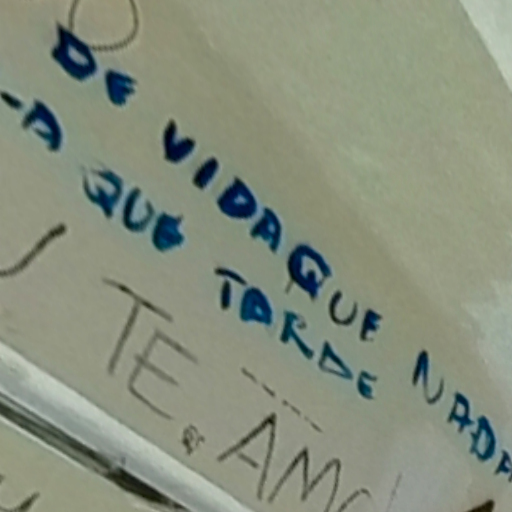 DE VIDA QUE NADA
-A QUE TARDE
TE AMO